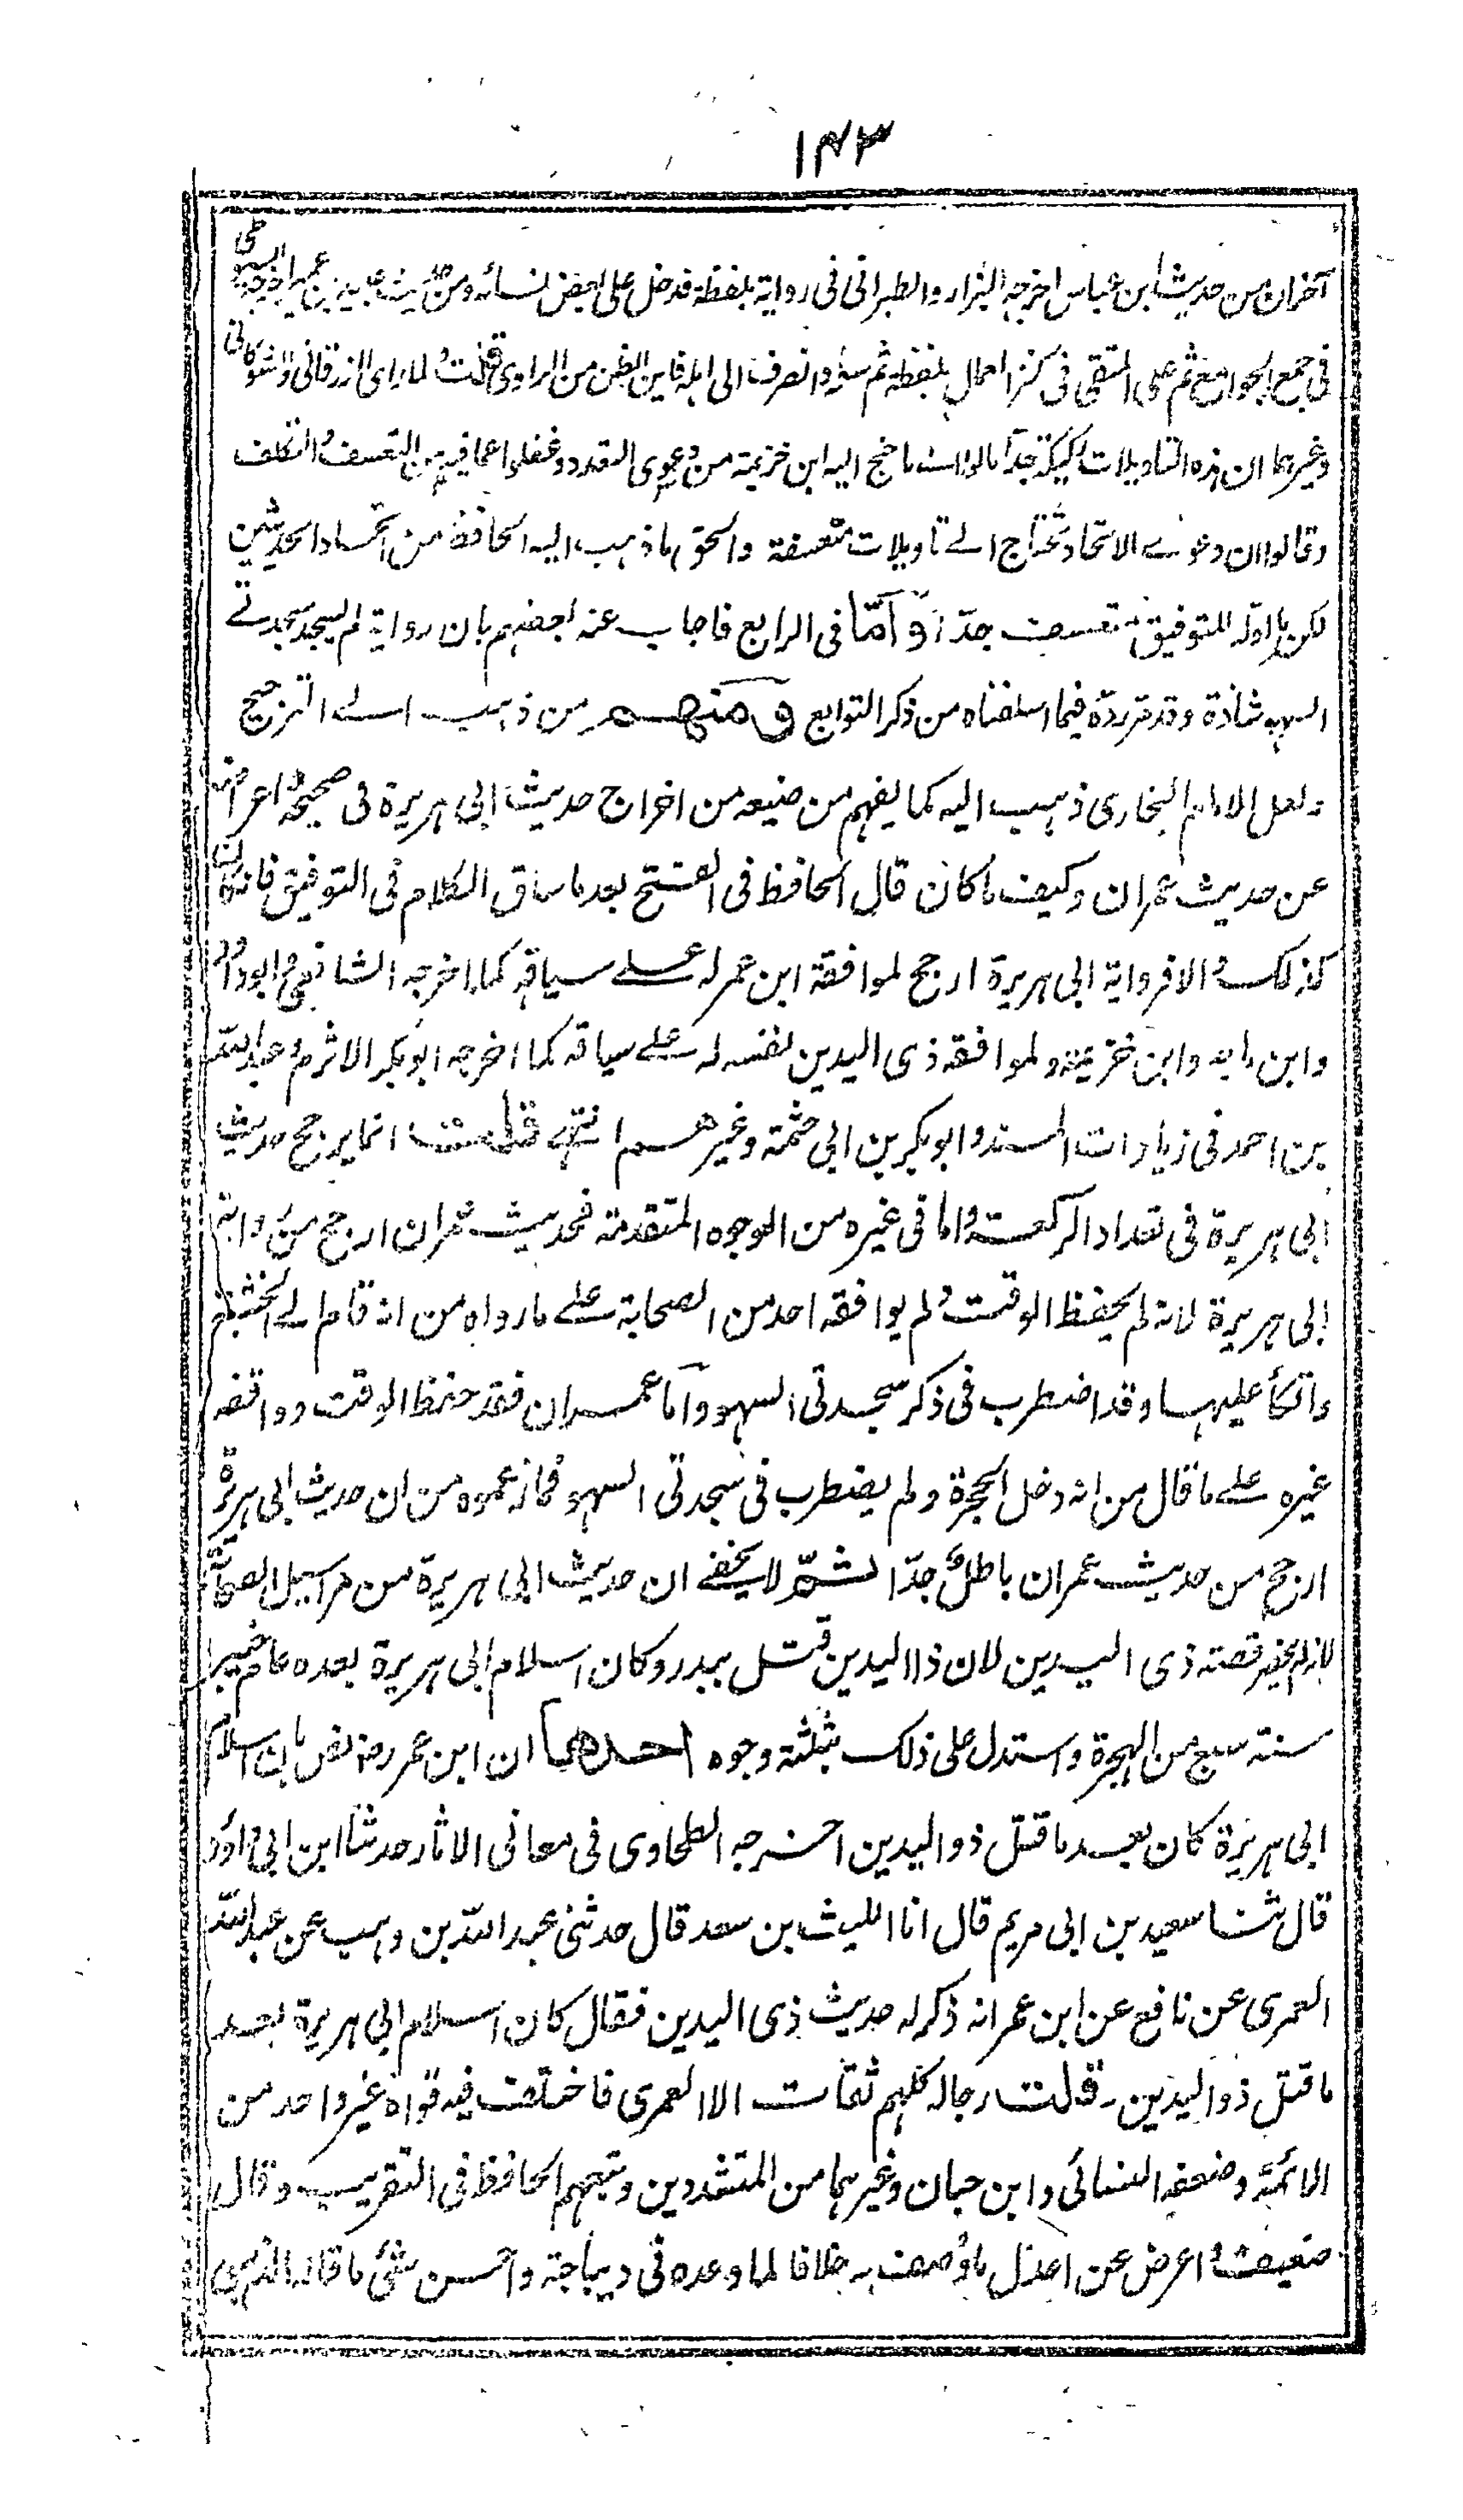 ١٤٣
آخران من حديث ابن عباس اخرجه البزار والطبرانى فى رواية بلفظة فدخل على بعض نسائه ومن حديث عبيد بن عمير اخرجه السيوطى
فى جمع الجوامع ثم على المتقى فى كنز العمال بلفظه ثم سلم وانصرف الى اهله فاين الظن من الراوى قلت لما راى الزرقانى والشوكانى
وغيرهما ان هذه التاويلات ركيكة جدا مالوا الى ما جنح اليه ابن خزيمة من دعوى التعدد وغفلوا عما فيه من التعسف والتكلف
وقالوا ان دعوى الاتحاد تحتاج الى تاويلات متعسفة والحق ما ذهب اليه الحافظ من اتحاد الحديثين
لكن ما اوله للتوفيق متعسف جدا وأما فى الرابع فاجاب عنه بعضهم بان رواية لم يسجد سجدتى
السهو شاذة وقد مر رده فيما اسلفناه من ذكر التوابع ومنهم من ذهب الى الترجيح
ولعل الامام البخارى ذهب اليه كما يفهم من صنيعه من اخراج حديث ابى هريرة فى صحيحه واعراضه
عن حديث عمران وكيف ما كان قال الحافظ فى الفتح بعد ما ساق الكلام فى التوفيق فان كان
كذلك والا فرواية ابى هريرة ارجح لموافقة ابن عمر له على سياقه كما اخرجه الشافعى وابو داؤد
وابن ماجه وابن خزيمة ولموافقة ذى اليدين نفسه له على سياقه كما اخرجه ابو بكر الاثرم وعبد الله
بن احمد فى زيادات المسند وابو بكر بن ابى خثمة وغيرهم انتهى قلت انما يرجح حديث
ابى هريرة فى تعداد الركعة واما فى غيره من الوجوه المتقدمة فحديث عمران ارجح من رواية
ابى هريرة لانه لم يحفظ الوقت ولم يوافقه احد من الصحابة على ما رواه من انه قام الى الخشبة
واتكأ عليها وقد اضطرب فى ذكر سجدتى السهو وأما عمران فقد حفظ الوقت ووافقه
غيره على ما قال من انه دخل الحجرة ولم يضطرب فى سجدتى السهو فما زعموه من ان حديث ابى هريرة
ارجح من حديث عمران باطل جدا ثم لا يخفى ان حديث ابى هريرة من مراسيل الصحابة
لانه لم يحضر قصة ذى اليدين لان ذا اليدين قتل ببدر وكان اسلام ابى هريرة بعده عام خيبر
سنة سبع من الهجرة واستدل على ذلك بثلثة وجوه احدها ان ابن عمر رض نص بان اسلام
ابى هريرة كان بعد ما قتل ذو اليدين اخرجه الطحاوى فى معانى الاثار حدثنا ابن ابى داؤد
قال ثنا سعيد بن ابى مريم قال انا الليث بن سعد قال حدثنى عبد الله بن وهب عن عبد الله
العمرى عن نافع عن ابن عمر انه ذكر له حديث ذى اليدين فقال كان اسلام ابى هريرة بعد
ما قتل ذو اليدين قلت رجاله كلهم ثقات الا العمرى فاختلف فيه قواه غير واحد من
الائمة وضعفه النسائى وابن حبان وغيرهما من المتشددين وتبعهم الحافظ فى التقريب وقال
ضعيف واعرض عن اعدل ما وصف به خلافا لما وعده فى ديباجته واحسن شئ ما قاله الذهبى